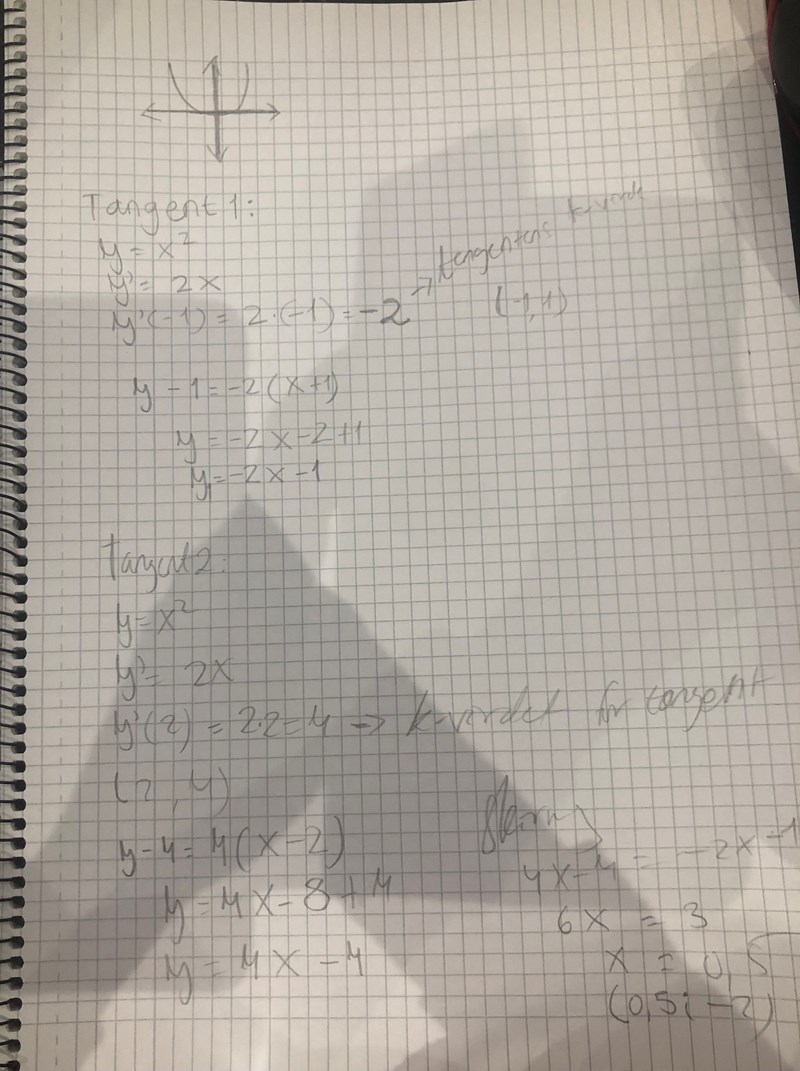 Tangent 1:
y = x²
y' = 2x
y'(-1) = 2·(-1) = -2 → tangentens k-värde
(-1,1)
y - 1 = -2(x+1)
y = -2x-2+1
y = -2x-1
Tangent 2:
y = x²
y' = 2x
y'(2) = 2·2 = 4 → k-värdet för tangent
(2,4)
y-4 = 4(x-2)
y = 4x-8+4
y = 4x-4
4x-4 = -2x-1
6x = 3
x = 0,5
(0,5; -2)